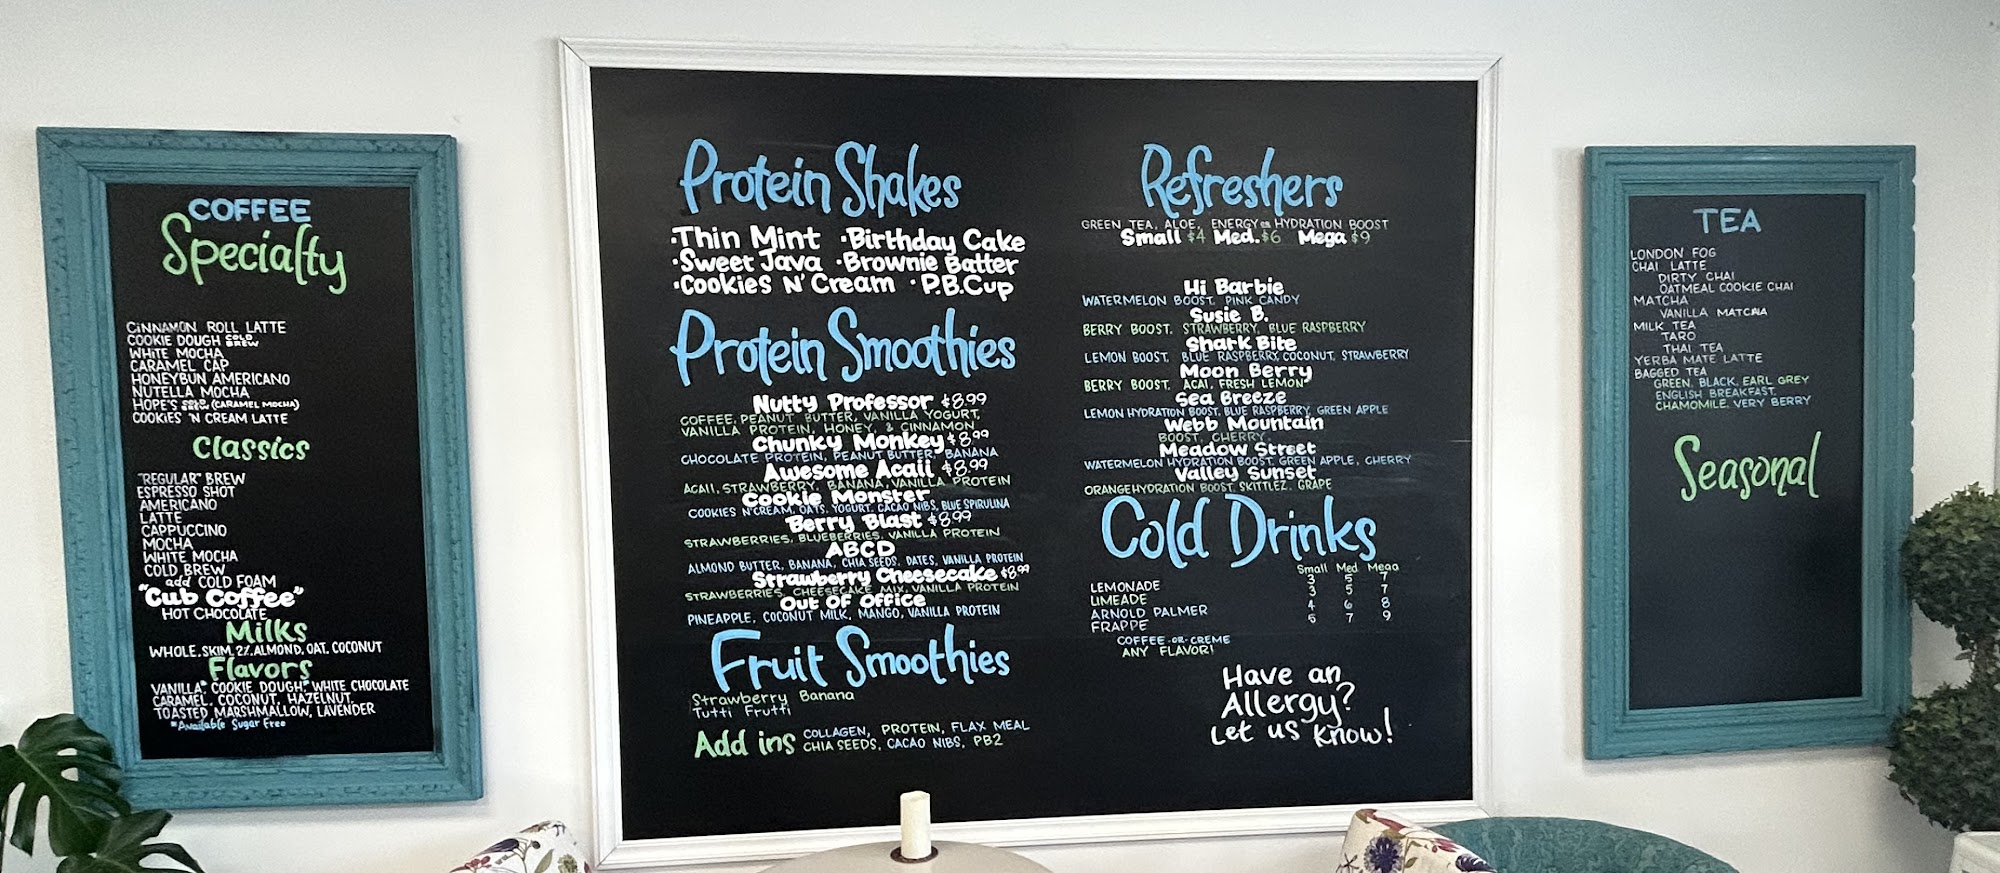 COFFEE
Specialty
CINNAMON ROLL LATTE
COOKIE DOUGH COLD BREW
WHITE MOCHA
CARAMEL CAP
HONEYBUN AMERICANO
NUTELLA MOCHA
HOPE'S COLD BREW (CARAMEL MOCHA)
COOKIES 'N CREAM LATTE
Classics
"REGULAR" BREW
ESPRESSO SHOT
AMERICANO
LATTE
CAPPUCCINO
MOCHA
WHITE MOCHA
COLD BREW
add COLD FOAM
"Cub Coffee"
HOT CHOCOLATE
Milks
WHOLE, SKIM, 2%, ALMOND, OAT, COCONUT
Flavors
VANILLA*, COOKIE DOUGH*, WHITE CHOCOLATE
CARAMEL, COCONUT, HAZELNUT,
TOASTED MARSHMALLOW, LAVENDER
*Available Sugar Free
Protein Shakes
·Thin Mint ·Birthday Cake
·Sweet Java ·Brownie Batter
·Cookies N' Cream ·P.B.Cup
Protein Smoothies
Nutty Professor $8.99
COFFEE, PEANUT BUTTER, VANILLA YOGURT,
VANILLA PROTEIN, HONEY, & CINNAMON
Chunky Monkey $8.99
CHOCOLATE PROTEIN, PEANUT BUTTER, BANANA
Awesome Acaii $8.99
ACAII, STRAWBERRY, BANANA, VANILLA PROTEIN
Cookie Monster
COOKIES N' CREAM, OATS, YOGURT, CACAO NIBS, BLUE SPIRULINA
Berry Blast $8.99
STRAWBERRIES, BLUEBERRIES, VANILLA PROTEIN
ABCD
ALMOND BUTTER, BANANA, CHIA SEEDS, DATES, VANILLA PROTEIN
Strawberry Cheesecake $8.99
STRAWBERRIES, CHEESECAKE MIX, VANILLA PROTEIN
Out of Office
PINEAPPLE, COCONUT MILK, MANGO, VANILLA PROTEIN
Fruit Smoothies
Strawberry Banana
Tutti Frutti
Add ins COLLAGEN, PROTEIN, FLAX MEAL
CHIA SEEDS, CACAO NIBS, PB2
Refreshers
GREEN TEA, ALOE, ENERGY OR HYDRATION BOOST
Small $4 Med. $6 Mega $9
Hi Barbie
WATERMELON BOOST, PINK CANDY
Susie B.
BERRY BOOST, STRAWBERRY, BLUE RASPBERRY
Shark Bite
LEMON BOOST, BLUE RASPBERRY, COCONUT, STRAWBERRY
Moon Berry
BERRY BOOST, ACAI, FRESH LEMON
Sea Breeze
LEMON HYDRATION BOOST, BLUE RASPBERRY, GREEN APPLE
Webb Mountain
BOOST, CHERRY,
Meadow Street
WATERMELON HYDRATION BOOST, GREEN APPLE, CHERRY
Valley Sunset
ORANGE HYDRATION BOOST, SKITTLEZ, GRAPE
Cold Drinks
Small Med Mega
LEMONADE 3 5 7
LIMEADE 3 5 7
ARNOLD PALMER 4 6 8
FRAPPE 5 7 9
COFFEE -OR- CREME
ANY FLAVOR!
Have an
Allergy?
Let us know!
TEA
LONDON FOG
CHAI LATTE
DIRTY CHAI
OATMEAL COOKIE CHAI
MATCHA
VANILLA MATCHA
MILK TEA
TARO
THAI TEA
YERBA MATE LATTE
BAGGED TEA
GREEN, BLACK, EARL GREY
ENGLISH BREAKFAST,
CHAMOMILE, VERY BERRY
Seasonal